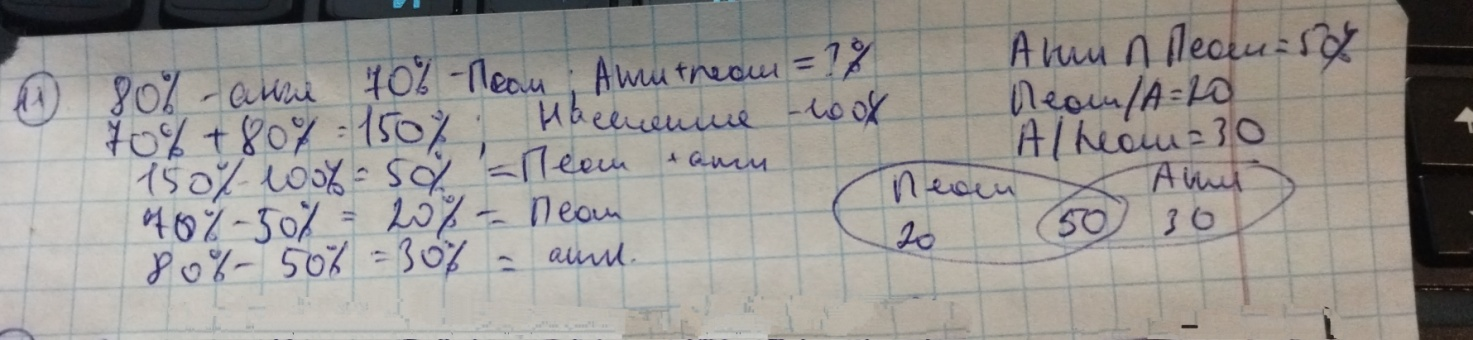 11 80% - англ 70% - Неом ; Англ + неом = ?%
70% + 80% = 150% ; Население - 100%
150% - 100% = 50% = Неом + англ
70% - 50% = 20% = Неом
80% - 50% = 30% = англ.
Англ ∩ Неом = 50%
Неом / А = 20
А / Неом = 30
Неом Англ
20 50 30